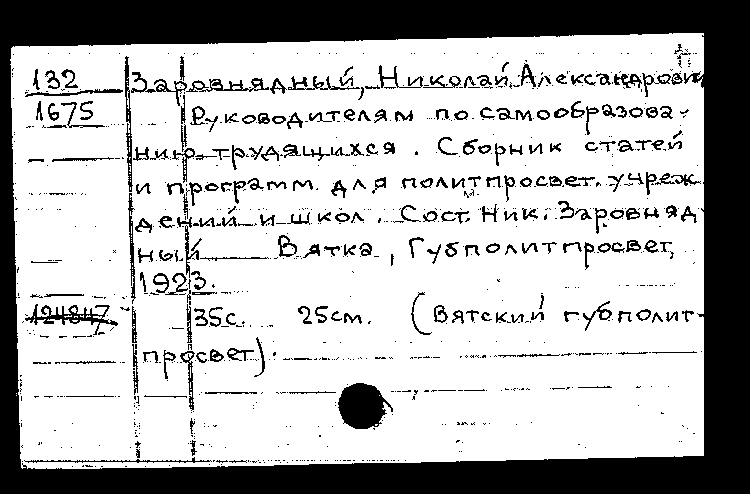 132 Заровнядный, Николай Александрович
1675 Руководителям по самообразова-
нию трудящихся. Сборник статей
и программ для политпросвет. учреж
дений и школ. Сост. Ник. Заровняд-
ный Вятка, Губполитпросвет,
1923.
124847 35с. 25см. (Вятский губполит-
просвет).